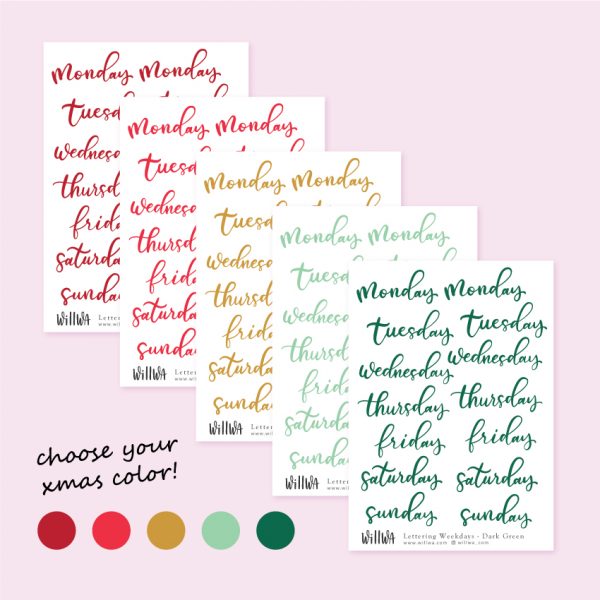 monday monday
tuesday
wednesday
thursday
friday
saturday
sunday
WillWa Lettering
www.willwa
monday monday
tuesday
wednesday
thursday
friday
saturday
sunday
WillWa Lette
www.w
monday monday
tuesday
wednesday
thursday
friday
saturday
sunday
WillWa Le
www
monday monday
tuesday
wednesday
thursday
friday
saturday
sunday
WillWa Lette
www.w
monday monday
tuesday tuesday
wednesday wednesday
thursday thursday
friday friday
saturday saturday
sunday sunday
WillWa Lettering Weekdays - Dark Green
www.willwa.com willwa_com
choose your
xmas color!